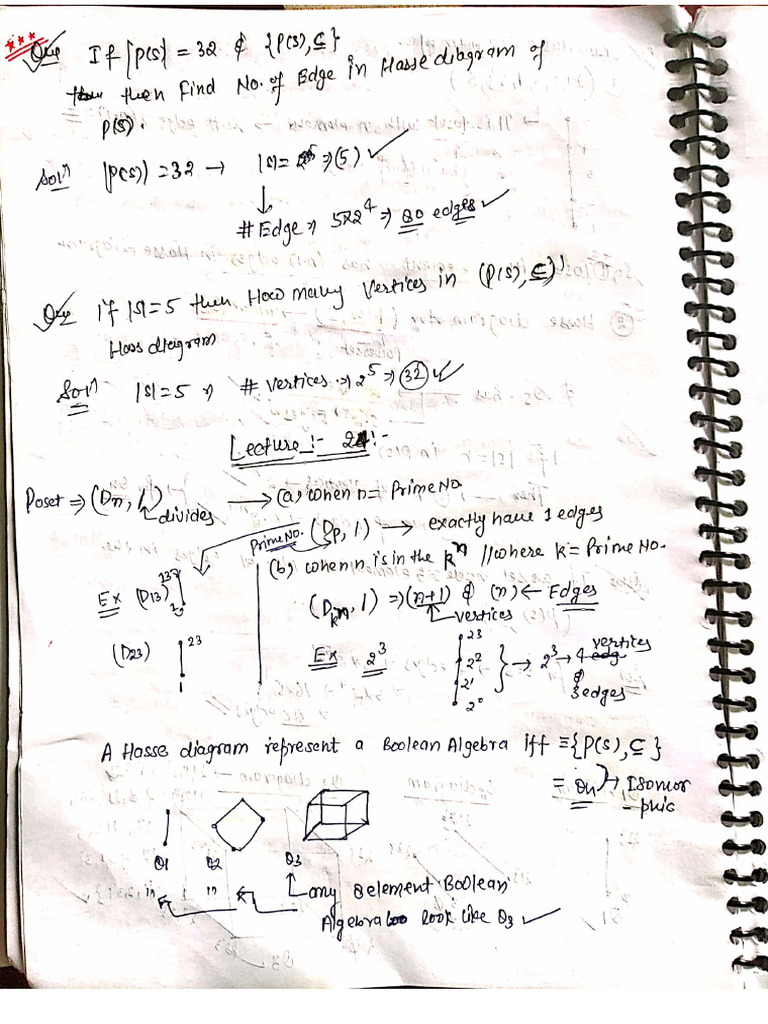 Que If |P(S)| = 32 & {P(S), ⊆}
then Find No. of Edge in Hasse diagram of
P(S).
Solⁿ |P(S)| = 32 → |S| = 2⁵ ⇒ (5)
↓
# Edge ⇒ 5×2⁴ ⇒ 80 edges
Que If |S| = 5 then How many Vertices in (P(S), ⊆)
Hass diagram
Solⁿ |S| = 5 ⇒ # Vertices ⇒ 2⁵ ⇒ 32
Lecture :- 24 :-
Poset ⇒ (Dn, |) → (a) when n = Prime No.
divides
Prime No. (Dp, |) → exactly have 1 edges
(b) when n is in the kⁿ // where k = Prime No.
Ex (D13) 13 1
(D_kⁿ, |) ⇒ (n+1) & (n) ← Edges
vertices
(D23) 23
1
Ex 2³
2³
2²
2¹
2⁰
→ 2³ → 4 vertices
&
3 edges
A Hasse diagram represent a Boolean Algebra iff ≡ {P(S), ⊆}
≡ Qn → Isomor
-phic
Q1 Q2 Q3
in in
any 8 element Boolean
Algebra look like Q3